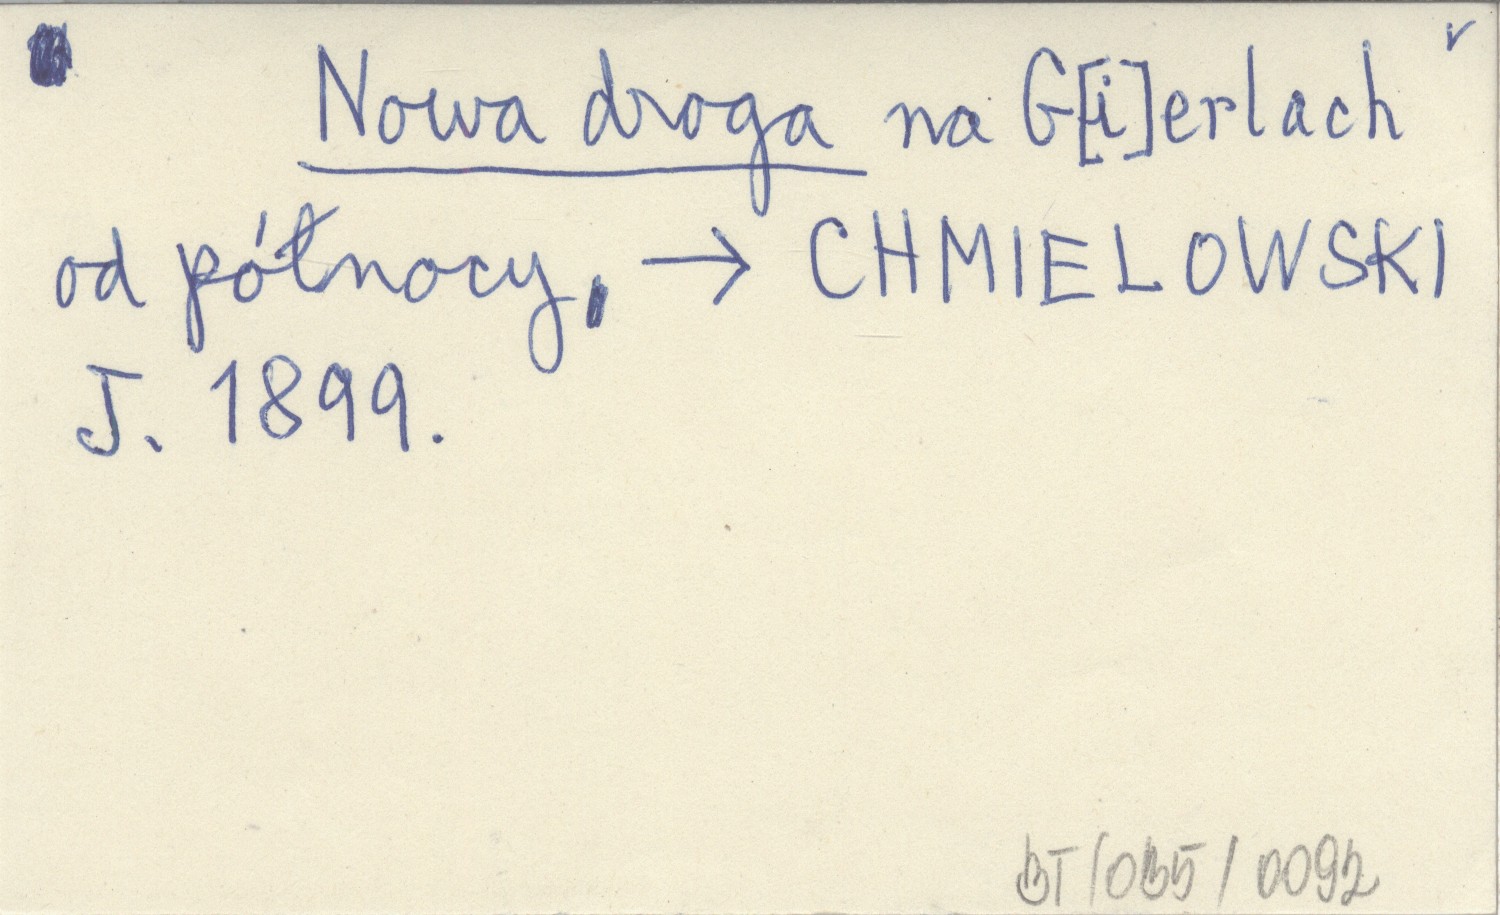 Nowa droga na G[i]erlach
od północy, → CHMIELOWSKI
J. 1899.